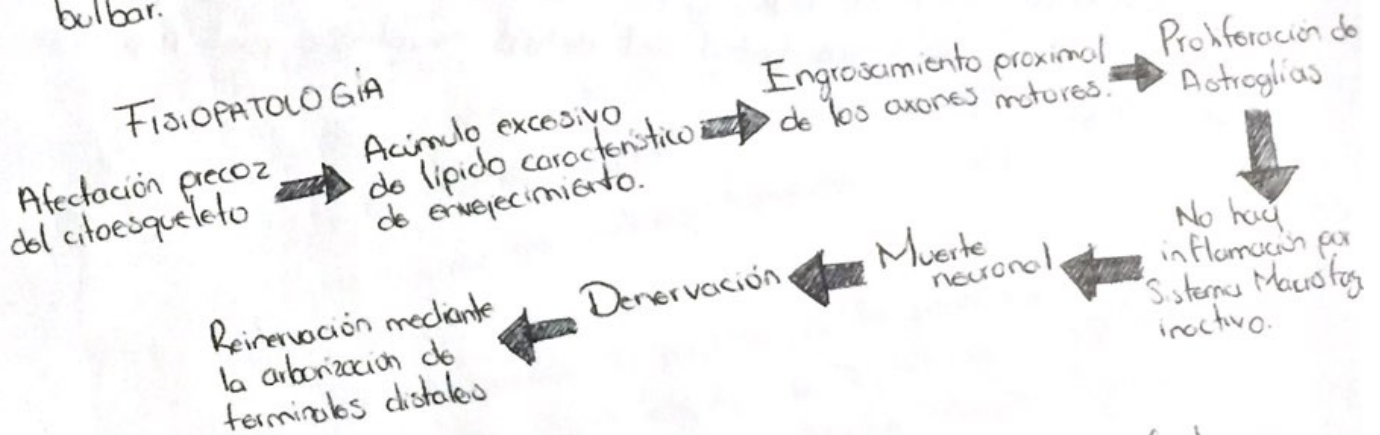 bulbar.
FISIOPATOLOGÍA
Afectación precoz
del citoesqueleto
Acúmulo excesivo
de lípido característico
de envejecimiento.
Engrosamiento proximal
de los axones motores.
Proliferación de
Astroglías
No hay
inflamación por
Sistema Macrofag
inactivo.
Muerte
neuronal
Denervación
Reinervación mediante
la arborización de
terminales distales